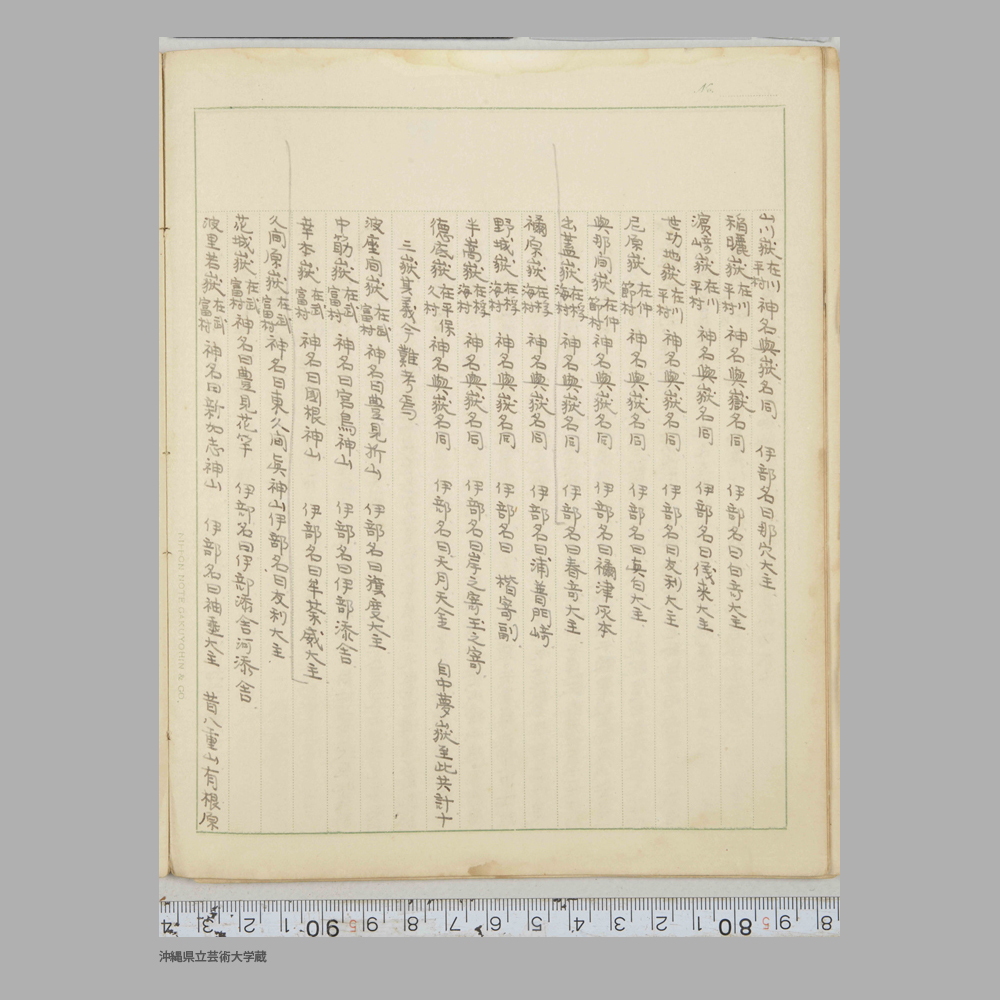 No.
山川嶽 在川平村 神名與嶽名同 伊部名曰那穴大主
稲曬嶽 在川平村 神名與嶽名同 伊部名曰白奇大主
濵﨑嶽 在川平村 神名與嶽名同 伊部名曰儀来大主
世功地嶽 在川平村 神名與嶽名同 伊部名曰友利大主
尼原嶽 在仲節村 神名與嶽名同 伊部名曰真白大主
與那同嶽 在仲節村 神名與嶽名同 伊部名曰禰津灰本
出蓋嶽 在桴海村 神名與嶽名同 伊部名曰春奇大主
禰原嶽 在桴海村 神名與嶽名同 伊部名曰浦普門﨑
野城嶽 在桴海村 神名與嶽名同 伊部名曰 楷寄副
半嵩嶽 在桴海村 神名與嶽名同 伊部名曰岸之寄玉之寄
德底嶽 在平保久村 神名與嶽名同 伊部名曰天月天金 自中夢嶽至此共計十
三嶽其義今難考焉
波座間嶽 在武富村 神名曰豊見折山 伊部名曰獲度大主
中筋嶽 在武富村 神名曰宮鳥神山 伊部名曰伊部添舎
幸本嶽 在武富村 神名曰國根神山 伊部名曰牟荼威大主
久間原嶽 在武富村 神名曰東久間真神山 伊部名曰友利大主
花城嶽 在武富村 神名曰豊見花竿 伊部名曰伊部添舎河添舎
波里若嶽 在武富村 神名曰新加志神山 伊部名曰袖壷大主 昔八重山有根原
NIHON NOTE GAKUYOHIN & CO.
4 3 2 1 90 9 8 7 6 5 4 3 2 1 80 9 8
沖縄県立芸術大学蔵